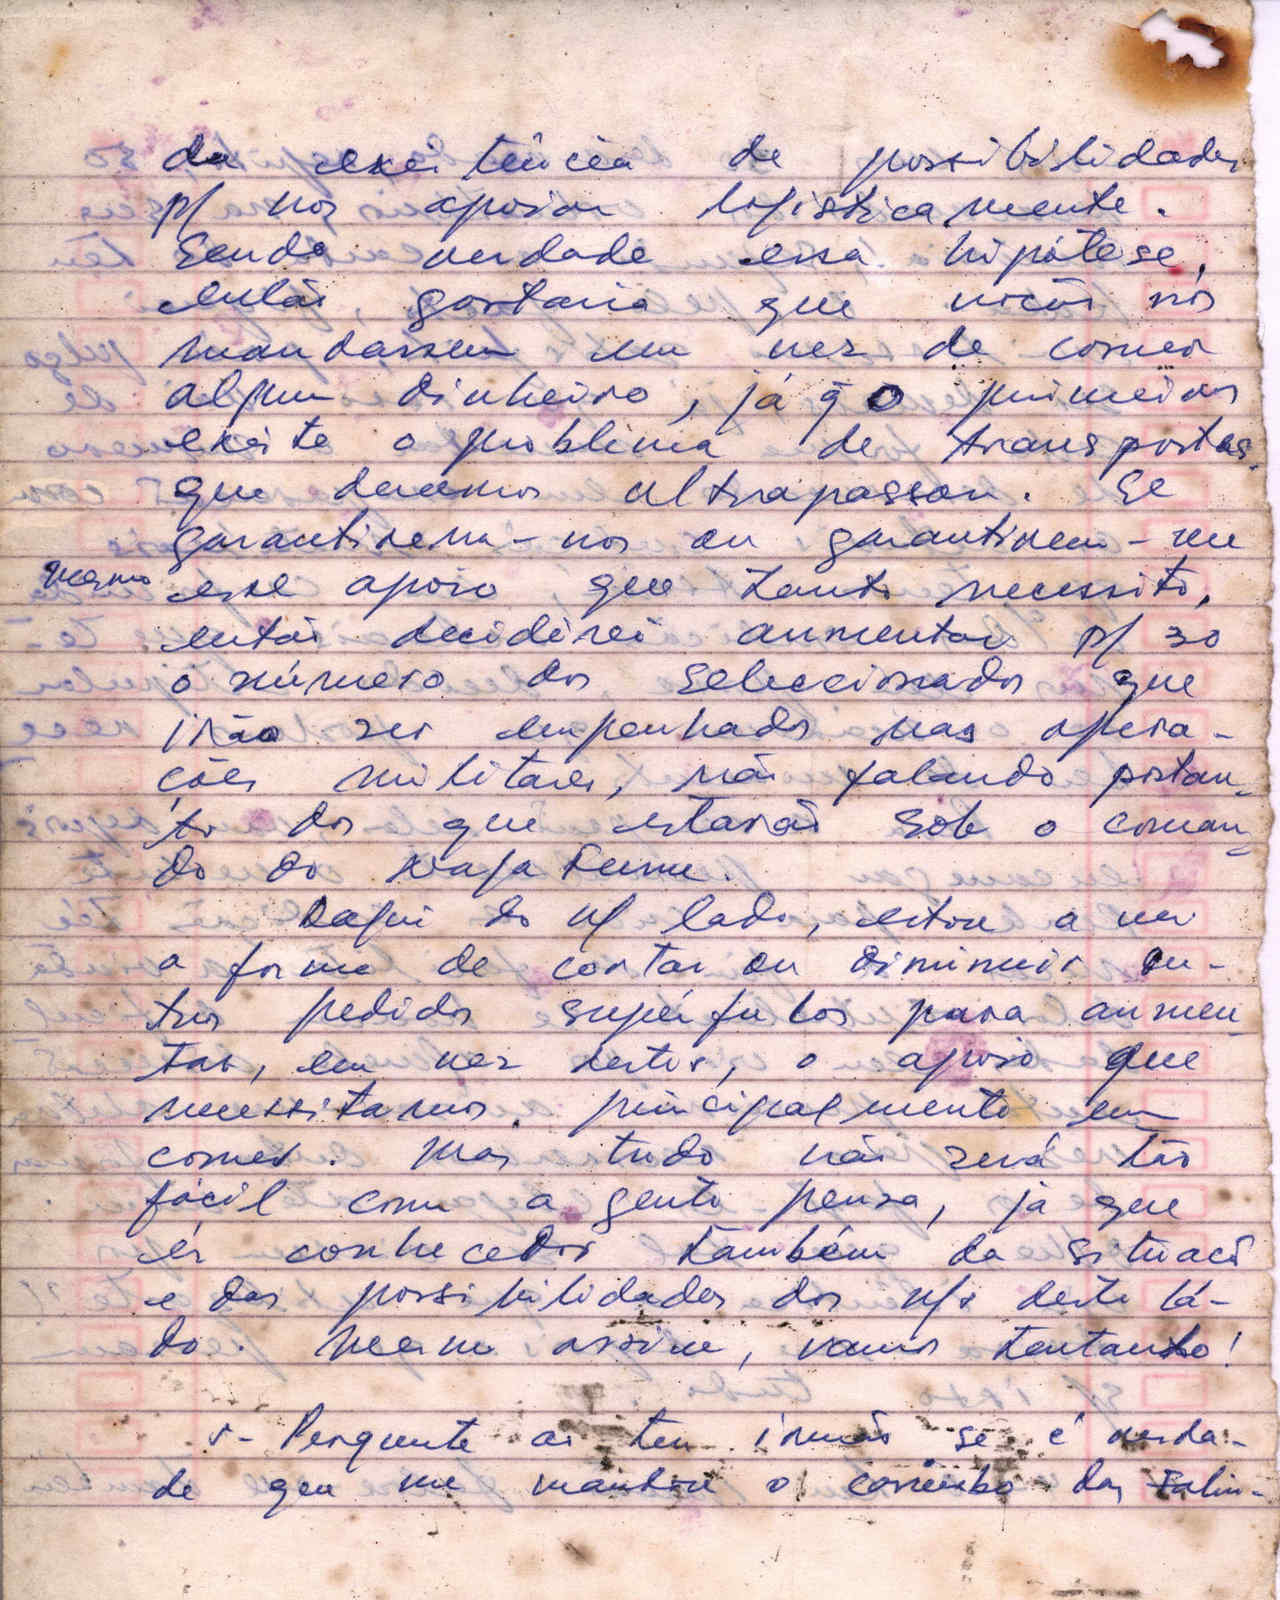 da existência de possibilidades
p/ nos apoiar logisticamente.
Sendo verdade essa hipótese,
então, gostaria que vocês nos
mandassem em vez de comer
algum dinheiro, já q o primeiro
existe o problema de transportes
que devemos ultrapassar. Se
garantirem-nos ou garantirem-me
mesmo esse apoio que tanto necessito,
então decidirei aumentar p/ 30
o número dos seleccionados que
irão ser empenhados nas opera-
ções militares, não falando portan-
to dos que estarão sob o coman-
do do
Daqui do n/ lado, estou a ver
a forma de cortar ou diminuir ou-
tros pedidos supérfulos para aumen-
tar, em vez destes, o apoio que
necessitamos principalmente em
comer. Mas tudo não será tão
fácil como a gente pensa, já que
és conhecedor também da situacã
e das possibilidades dos n/s deste la-
do. Mesmo assim, vamos tentando!
5- Pergunte ao teu irmão se é verda-
de que me mandou o carimbo das